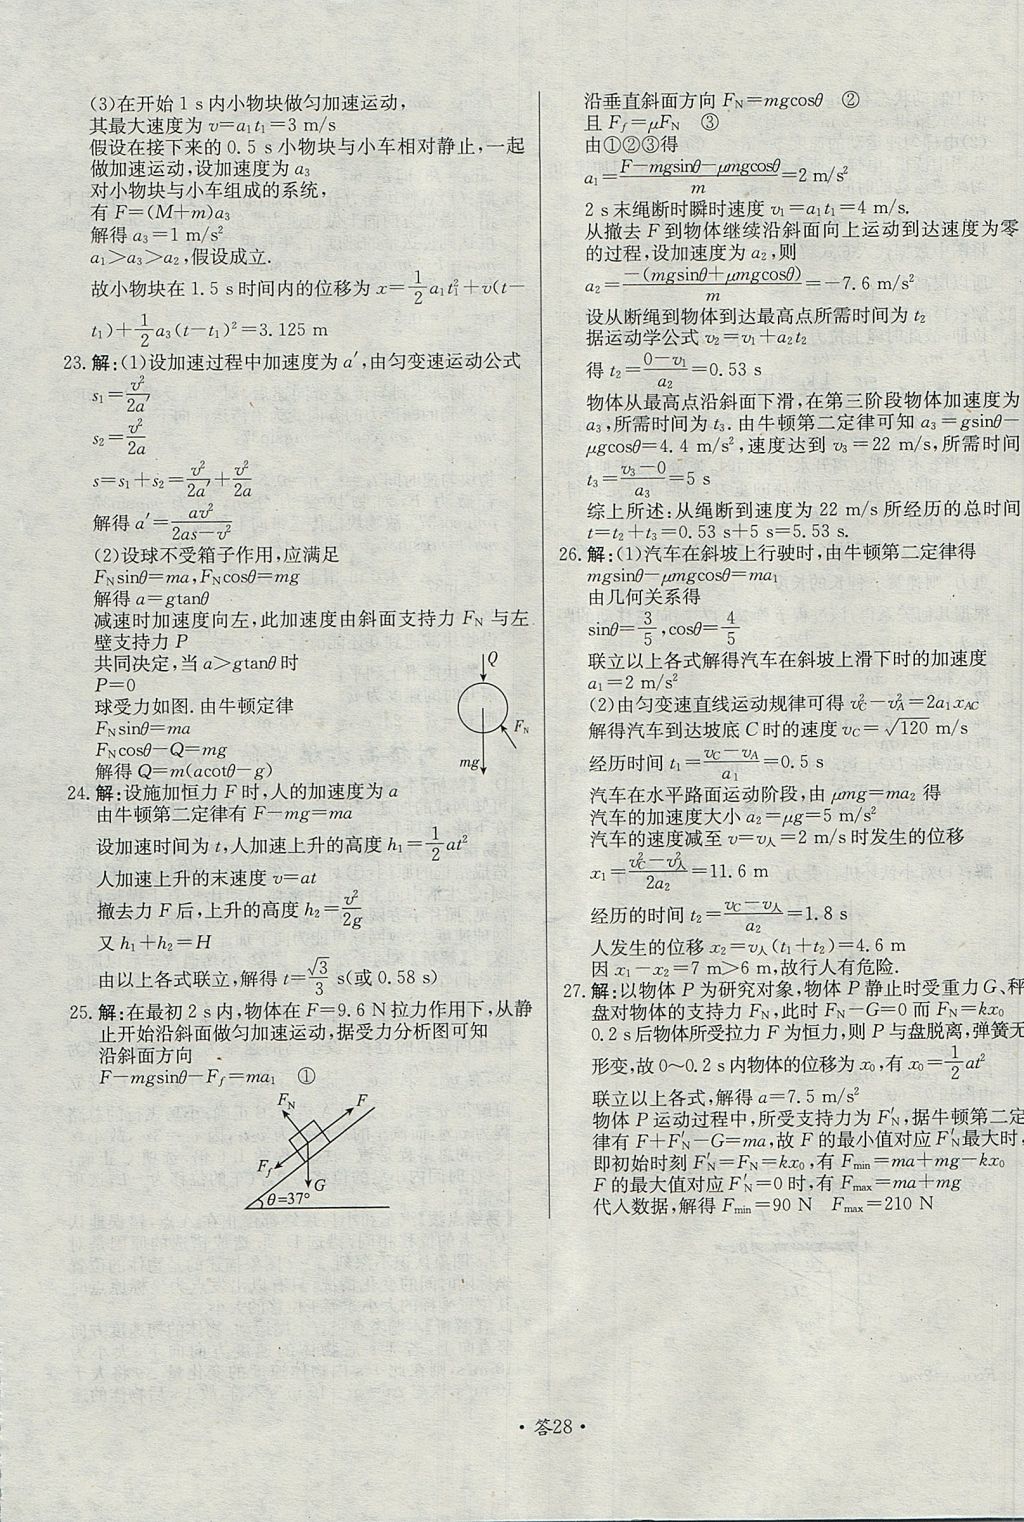 (3)在开始 1 s 内小物块做匀加速运动，
其最大速度为 v=a₁t₁=3 m/s
假设在接下来的 0.5 s 小物块与小车相对静止，一起
做加速运动，设加速度为 a₃
对小物块与小车组成的系统，
有 F=(M+m)a₃
解得 a₃=1 m/s²
a₁>a₃>a₂，假设成立.
故小物块在 1.5 s 时间内的位移为 x=1/2 a₁t₁²+v(t-
t₁)+1/2 a₃(t-t₁)²=3.125 m
23. 解：(1)设加速过程中加速度为 a′，由匀变速运动公式
s₁=v²/2a′
s₂=v²/2a
s=s₁+s₂=v²/2a′+v²/2a
解得 a′=av²/(2as-v²)
(2)设球不受箱子作用，应满足
F_N sinθ=ma，F_N cosθ=mg
解得 a=gtanθ
减速时加速度向左，此加速度由斜面支持力 F_N 与左
壁支持力 P
共同决定，当 a>gtanθ 时
P=0
球受力如图. 由牛顿定律
F_N sinθ=ma
F_N cosθ-Q=mg
解得 Q=m(acotθ-g)
Q
F_N
mg
24. 解：设施加恒力 F 时，人的加速度为 a
由牛顿第二定律有 F-mg=ma
设加速时间为 t，人加速上升的高度 h₁=1/2 at²
人加速上升的末速度 v=at
撤去力 F 后，上升的高度 h₂=v²/2g
又 h₁+h₂=H
由以上各式联立，解得 t=√3/3 s(或 0.58 s)
25. 解：在最初 2 s 内，物体在 F=9.6 N 拉力作用下，从静
止开始沿斜面做匀加速运动，据受力分析图可知
沿斜面方向
F-mgsinθ-F_f=ma₁ ①
F_N
F
F_f
G
θ=37°
沿垂直斜面方向 F_N=mgcosθ ②
且 F_f=μF_N ③
由①②③得
a₁=(F-mgsinθ-μmgcosθ)/m=2 m/s²
2 s 末绳断时瞬时速度 v₁=a₁t₁=4 m/s.
从撤去 F 到物体继续沿斜面向上运动到达速度为零
的过程，设加速度为 a₂，则
a₂=-(mgsinθ+μmgcosθ)/m=-7.6 m/s²
设从断绳到物体到达最高点所需时间为 t₂
据运动学公式 v₂=v₁+a₂t₂
得 t₂=(0-v₁)/a₂=0.53 s
物体从最高点沿斜面下滑，在第三阶段物体加速度为
a₃，所需时间为 t₃. 由牛顿第二定律可知 a₃=gsinθ-
μgcosθ=4.4 m/s²，速度达到 v₃=22 m/s，所需时间
t₃=(v₃-0)/a₃=5 s
综上所述：从绳断到速度为 22 m/s 所经历的总时间
t=t₂+t₃=0.53 s+5 s=5.53 s.
26. 解：(1)汽车在斜坡上行驶时，由牛顿第二定律得
mgsinθ-μmgcosθ=ma₁
由几何关系得
sinθ=3/5，cosθ=4/5
联立以上各式解得汽车在斜坡上滑下时的加速度
a₁=2 m/s²
(2)由匀变速直线运动规律可得 v_C²-v_A²=2a₁x_AC
解得汽车到达坡底 C 时的速度 v_C=√120 m/s
经历时间 t₁=(v_C-v_A)/a₁=0.5 s
汽车在水平路面运动阶段，由 μmg=ma₂ 得
汽车的加速度大小 a₂=μg=5 m/s²
汽车的速度减至 v=v人=2 m/s 时发生的位移
x₁=(v_C²-v人²)/2a₂=11.6 m
经历的时间 t₂=(v_C-v人)/a₂=1.8 s
人发生的位移 x₂=v人(t₁+t₂)=4.6 m
因 x₁-x₂=7 m>6 m，故行人有危险.
27. 解：以物体 P 为研究对象，物体 P 静止时受重力 G、秤
盘对物体的支持力 F_N，此时 F_N-G=0 而 F_N=kx₀
0.2 s 后物体所受拉力 F 为恒力，则 P 与盘脱离，弹簧无
形变，故 0~0.2 s 内物体的位移为 x₀，有 x₀=1/2 at²
联立以上各式，解得 a=7.5 m/s²
物体 P 运动过程中，所受支持力为 F′_N，据牛顿第二定
律有 F+F′_N-G=ma，故 F 的最小值对应 F′_N最大时，
即初始时刻 F′_N=F_N=kx₀，有 F_min=ma+mg-kx₀
F 的最大值对应 F′_N=0 时，有 F_max=ma+mg
代人数据，解得 F_min=90 N F_max=210 N
• 答28 •